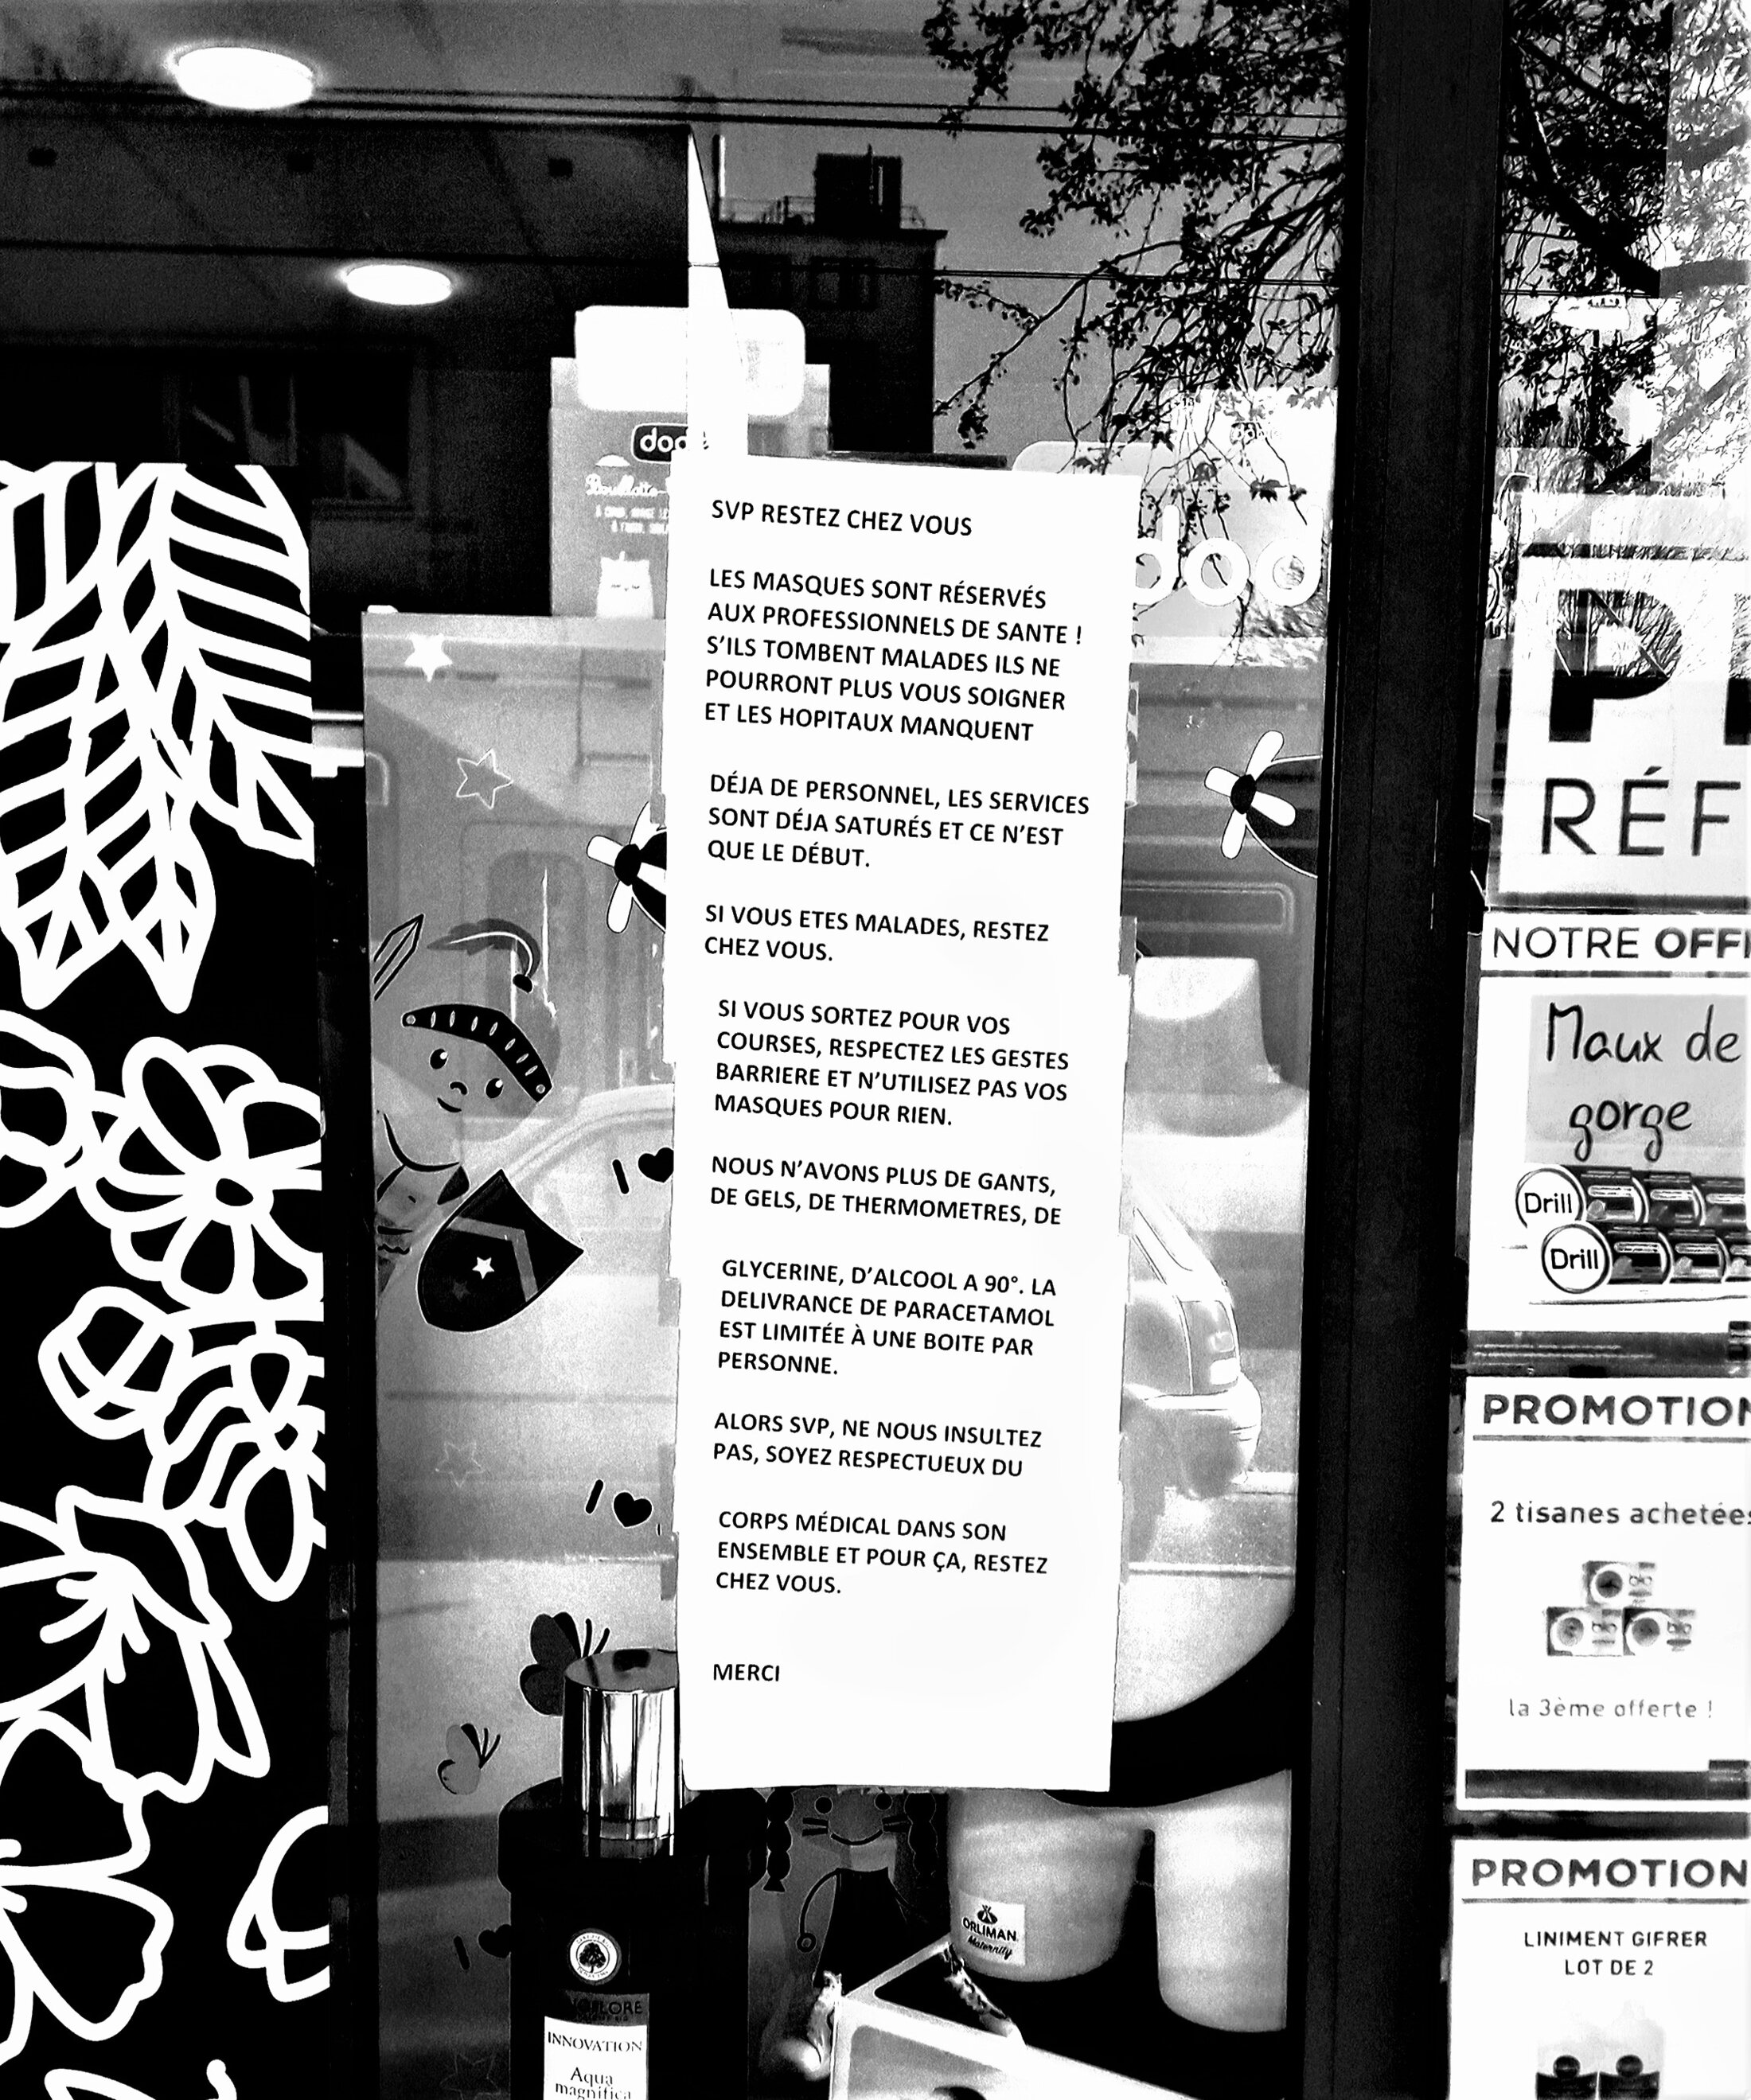 SVP RESTEZ CHEZ VOUS
LES MASQUES SONT RÉSERVÉS
AUX PROFESSIONNELS DE SANTE !
S'ILS TOMBENT MALADES ILS NE
POURRONT PLUS VOUS SOIGNER
ET LES HOPITAUX MANQUENT
DÉJA DE PERSONNEL, LES SERVICES
SONT DÉJA SATURÉS ET CE N'EST
QUE LE DÉBUT.
SI VOUS ETES MALADES, RESTEZ
CHEZ VOUS.
SI VOUS SORTEZ POUR VOS
COURSES, RESPECTEZ LES GESTES
BARRIERE ET N'UTILISEZ PAS VOS
MASQUES POUR RIEN.
NOUS N'AVONS PLUS DE GANTS,
DE GELS, DE THERMOMETRES, DE
GLYCERINE, D'ALCOOL A 90°. LA
DELIVRANCE DE PARACETAMOL
EST LIMITÉE À UNE BOITE PAR
PERSONNE.
ALORS SVP, NE NOUS INSULTEZ
PAS, SOYEZ RESPECTUEUX DU
CORPS MÉDICAL DANS SON
ENSEMBLE ET POUR ÇA, RESTEZ
CHEZ VOUS.
MERCI
doo
I
I
I
ORLIMAN
Maternity
INNOVATION
Aqua
magnifica
RÉF
NOTRE OFFI
Maux de
gorge
Drill
Drill
PROMOTION
2 tisanes achetées
bio
bio bio
la 3ème offerte !
PROMOTION
LINIMENT GIFRER
LOT DE 2